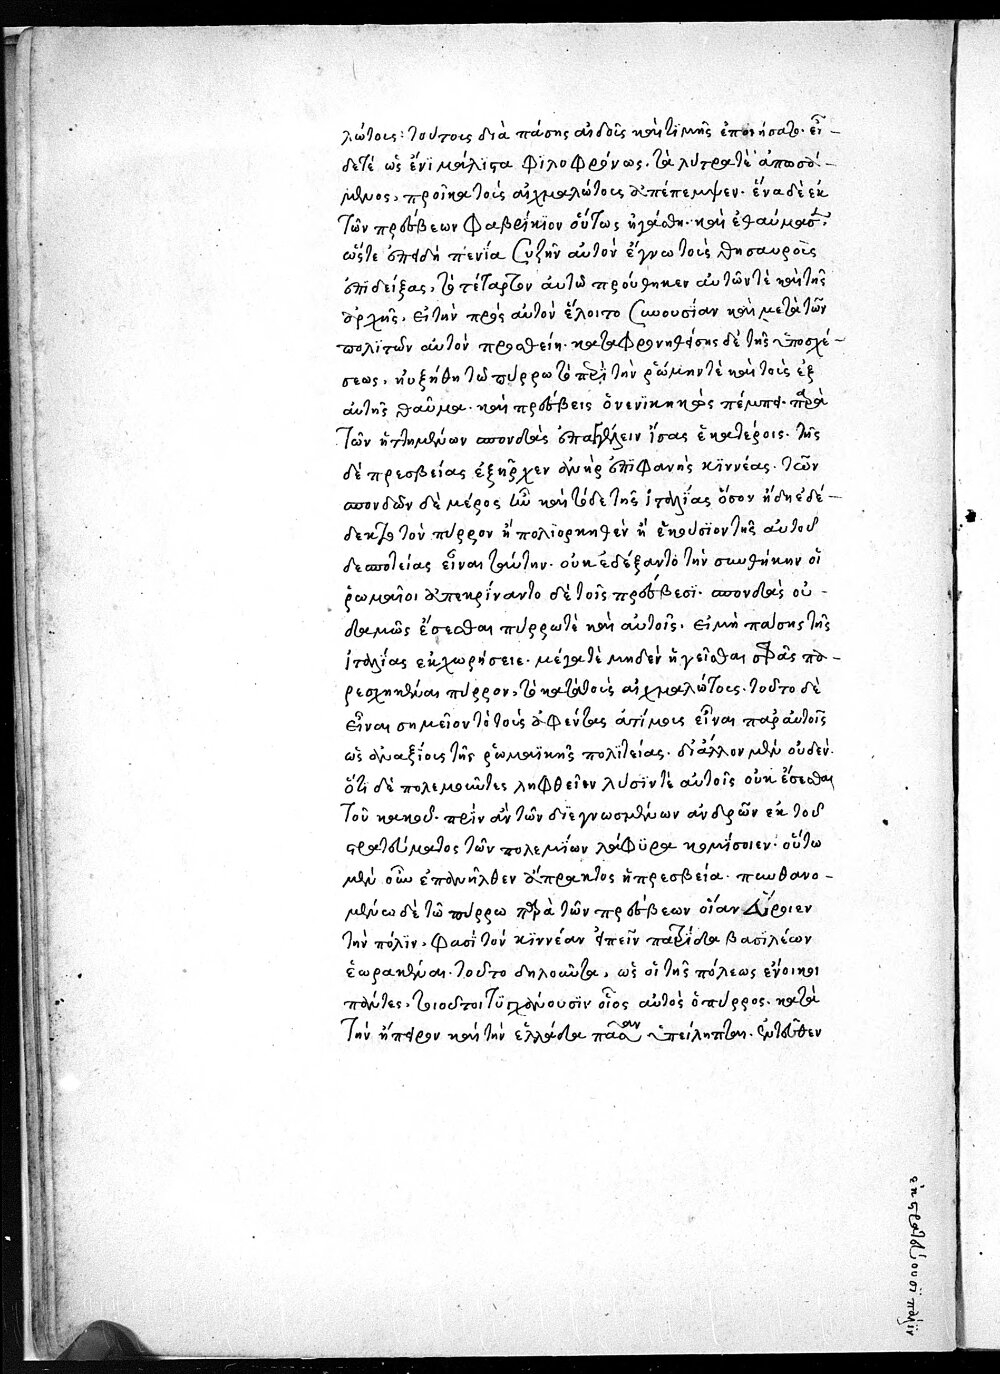 λώτοις· τούτοις διὰ πάσης αἰδοῖς καὶ τιμῆς ἐποιήσατο· εἶ-
δε τέ ὡς ἔνι μάλιστα φιλοφρόνως. τὰ λύτρα τὲ ἀποσδό-
μενος, προῖκα τοὺς αἰχμαλώτους ἀπέπεμψεν· ἕνα δὲ ἐκ
τῶν πρέσβεων Φαβρίκιον οὕτως ἠγάσθη· καὶ ἐθαύμασεν,
ὥστε ἐπειδὴ πενία συζῆν αὐτὸν ἔγνω τοὺς θησαυροῖς
ἐπιδείξας, τὸ τέταρτον αὐτῶ προύθηκεν αὐτῶν τὲ καὶ τῆς
ἀρχῆς. εἰ τὴν πρὸς αὐτὸν ἕλοιτο συνουσίαν καὶ μετὰ τῶν
πολιτῶν αὐτὸν προσθείη· καταφρονηθείσης δὲ τῆς ὑποσχέ-
σεως, ηὐξήθη τῶ πύρρω τὸ περὶ τὴν ῥώμην τὲ καὶ τοὺς ἐξ
αὐτῆς θαῦμα· καὶ πρέσβεις ὁ νενικηκὼς πέμπει παρὰ
τῶν ἡττημένων σπονδὰς ἐπαγγέλλειν ἴσας ἑκατέροις· τῆς
δὲ πρεσβείας ἐξῆρχεν ἀνὴρ ἐπιφανὴς κιννέας· τῶν
σπονδῶν δὲ μέρος ἦν καὶ τόδε τῆς ἰταλίας ὅσον ἤδη ἐδέ-
δεκτο τὸν πύρρον ἢ πολιορκηθὲν ἢ ἑκούσιον τῆς αὐτοῦ
δεσποτείας εἶναι ταύτην· οὐκ ἐδέξαντο τὴν συνθήκην οἱ
ῥωμαῖοι ἀπεκρίναντο δὲ τοῖς πρέσβεσι· σπονδὰς οὐ-
δαμῶς ἔσεσθαι πύρρω τὲ καὶ αὐτοῖς. εἰ μὴ πάσης τῆς
ἰταλίας ἐκχωρήσειε· μέγα τὲ μηδὲν ἡγεῖσθαι σφᾶς πα-
ρεσχηκέναι πύρρον, τὸ κατὰ τοὺς αἰχμαλώτους. τοῦτο δὲ
εἶναι σημεῖον τὸ τοὺς ἀφέντας ἀτίμους εἶναι παρ αὐτοῖς
ὡς ἀναξίους τῆς ῥωμαϊκῆς πολιτείας· δι ἄλλον μὲν οὐδέν.
ὅτι δὲ πολεμοῦντες ληφθεῖεν λύσιν τὲ αὐτοῖς οὐκ ἔσεσθαι
τοῦ κακοῦ· πρὶν ἂν τῶν διεγνωσμένων ἀνδρῶν ἐκ τοῦ
στρατεύματος τῶν πολεμίων λάφυρα κομίσοιεν· οὕτω
μὲν οὖν ἐπανῆλθεν ἄπρακτος ἡ πρεσβεία· πυνθανο-
μένω δὲ τῶ πύρρω παρὰ τῶν πρέσβεων οἵαν εὕροιεν
τὴν πόλιν, φασὶ τὸν κιννέαν εἰπεῖν πατρίδα βασιλέων
ἑωρακέναι· τοῦτο δηλοῦντα, ὡς οἱ τῆς πόλεως ἔνοικοι
πάντες, τοιοῦτοι τυγχάνουσιν οἷος αὐτὸς ὁ πύρρος· κατὰ
τὴν ἤπειρον καὶ τὴν ἑλλάδα πᾶσαν ὑπείληπται. ἐντεῦθεν
ἐκστρατεύουσι πάλιν